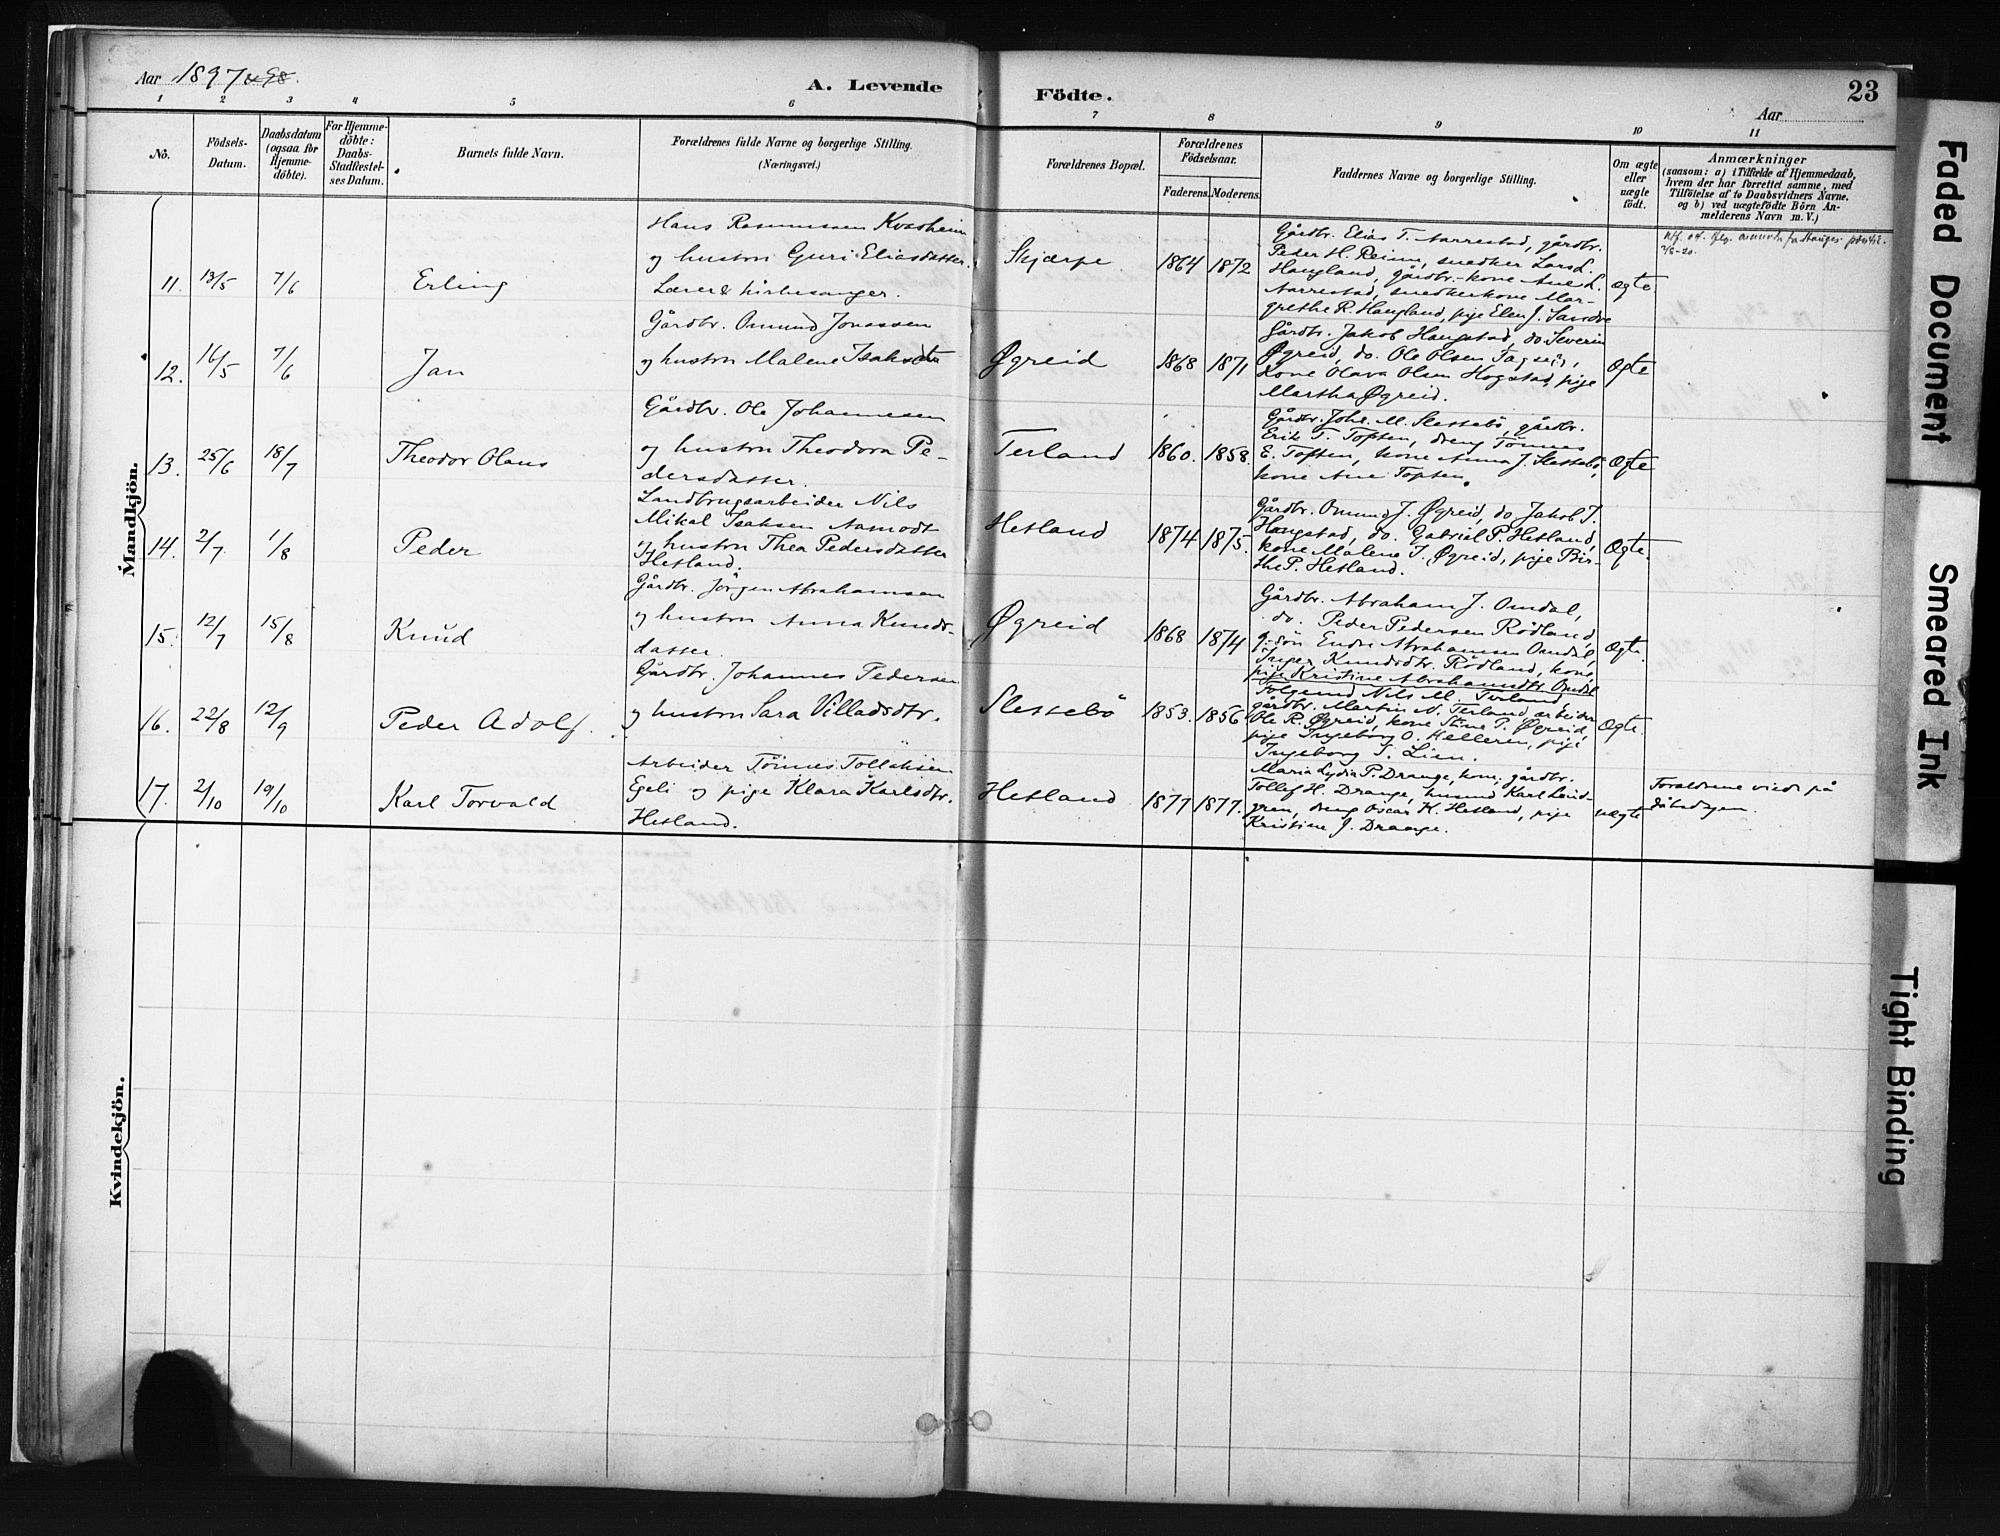 Aar 1897 & 98.
A. Levende
Födte.
Aar
23
1 2 3 4 5 6 7 8 9 10 11
No.
Födsels-
Datum.
Daabsdatum
(ogsaa for
Hjemme-
döbte).
For Hjemme-
döbte:
Daabs-
Stadfæstel-
ses Datum.
Barnets fulde Navn.
Forældrenes fulde Navne og borgerlige Stilling.
(Næringsvei.)
Forældrenes Bopæl.
Forældrenes
Födselsaar.
Faderens.
Moderens.
Faddernes Navne og borgerlige Stilling.
Om ægte
eller
uægte
födt.
Anmærkninger
(saasom: a) i Tilfælde af Hjemmedaab,
hvem der har forrettet samme, med
Tilföielse af to Daabsvidners Navne.
og b) ved uægtefödte Börn An-
melderens Navn m. V.)
Mandkjön.
11. 13/5 7/6 Erling
Hans Rasmussen Kvasheim
og hustru Guri Eliasdatter.
Lærer & kirkesanger.
Skjærpe 1864 1872
Gårdbr. Elias T. Aarrestad, gårdbr.
Peder H. Reime, snedker Lars L.
Haugland, gårdbr.-kone Ane L.
Aarrestad, snedkerkone Mar-
grethe R. Haugland, pige Elen J. Sandve
ægte.
12. 16/5 7/6 Jan
Gårdbr. Omund Jonassen
og hustru Malene Isaksdtr
Øgreid 1868 1871
Gårdbr. Jakob Haugstad, do. Severin
Øgreid, do. Ole Olsen
Kone Olava Olsen Hogstad, pige
Martha Øgreid.
Ægte
13. 25/6 18/7 Theodor Olaus
Gårdbr. Ole Johannesen
og hustru Theodora Pe-
dersdatter.
Terland 1860. 1858.
Gårdbr. Johs. M. Slettebö, gårdbr.
Erik T. Toften, dreng Tönnes
E. Toften, kone Anna J. Slettebö,
kone Ane Toften.
Ægte
14. 2/7. 1/8 Peder
Landbrugsarbeider Nils
Mikal Isaksen Aamodt
og hustru Thea Pedersdatter
Hetland.
Hetland 1874 1875.
Gårdbr. Omund J. Øgreid, do Jakob T.
Haugstad, do. Gabriel P. Hetland,
kone Malene I. Øgreid, pige Bir-
the P. Hetland.
Ægte.
15. 12/7 15/8 Knud
Gårdbr. Jörgen Abrahamsen
og hustru Anna Knuds-
datter.
Øgreid 1868 1874
Gårdbr. Abraham J. Omdal,
do. Peder Pedersen Rödland,
g.-sön Endre Abrahamsen Omdal,
Inger Knudsdtr. Rödland, kone,
pige Kristine Abrahamsdtr. Omdal
Ægte.
16. 22/8 12/9 Peder Adolf.
Gårdbr. Johannes Pedersen
og hustru Sara Villadsdtr.
Slettebö 1853. 1856
Nils M. Terland,
gårdbr. Martin N. Terland, arbeider
Ole R. Øgreid, kone Stine T. Øgreid,
pige Ingeborg O. Helleren, pige
Ingeborg T. Lien.
Ægte.
17. 2/10 19/10 Karl Torvald
Arbeider Tönnes Tollaksen
Egeli og pige Klara Karlsdtr.
Hetland.
Hetland 1877 1877.
Maria Lydia P. Drange, kone, gårdbr.
Tollef H. Drange, husmd Karl Lind-
gren, dreng Oscar K. Hetland, pige
Kristine J. Drange.
uægte
Forældrene viede på
dåbsdagen.
Kvindekjön.
Faded Document
Smeared Ink
Tight Binding